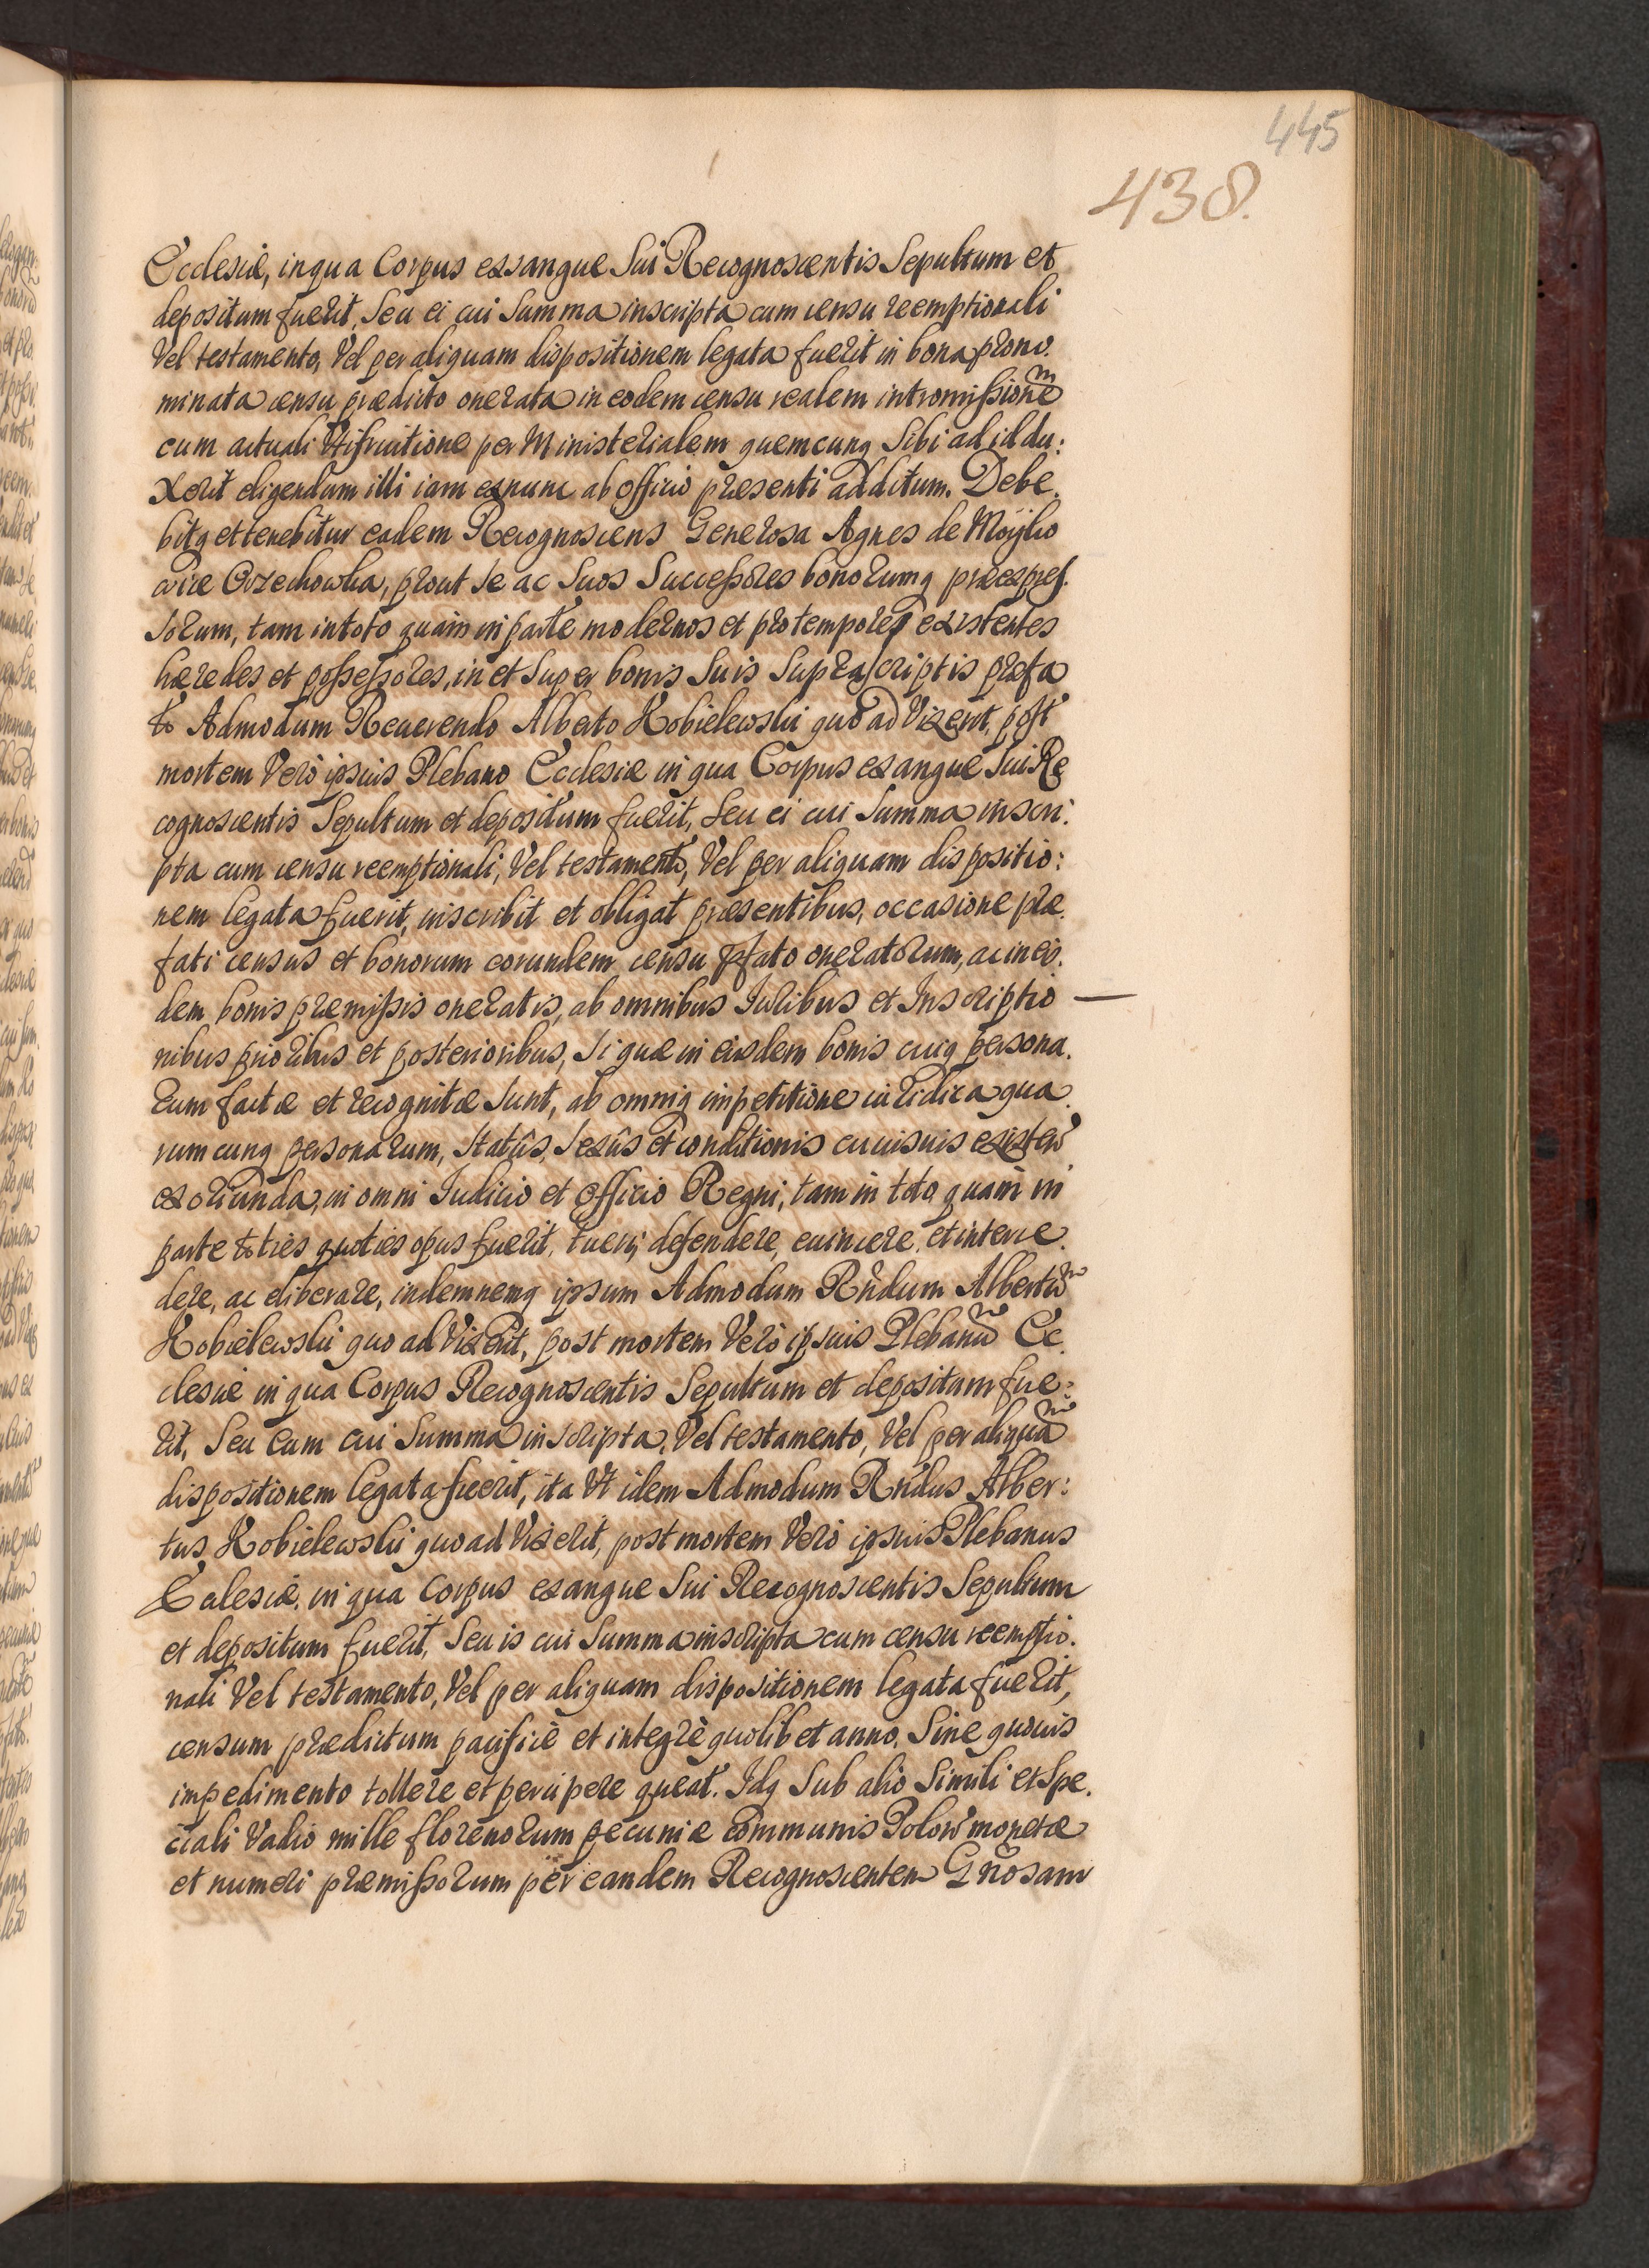 445
438.
Ecclesiæ, in qua Corpus exsangue Sui Recognoscentis Sepultum et
depositum fuerit, Seu ei cui Summa inscripta cum censu reemptionali
Vel testamento, Vel per aliquam dispositionem legata fuerit in bona præno:
minata censu prædicto onerata in eodem censu realem intromissionē
cum actuali Usufruitione per Ministerialem quemcunq Sibi ad id du:
xerit eligendum illi iam exnunc ab officio præsenti additum. Debe.
bitq et tenebitur eadem Recognoscens Generosa Agnes de
Orzechowska, prout Se ac Suos Successores bonorumq præexpres.
sorum, tam in toto quàm in parte modernos et pro tempore existentes
hæredes et possessores, in et Super bonis Suis Suprascriptis præfa
to Admodum Reuerendo Alberto Kobielewski quo ad Vixerit, post
mortem Verò ipsius Plebano Ecclesiæ in qua Corpus exangue Sui Re
cognoscentis Sepultum et depositum fuerit, Seu ei cui Summa inscri:
pta cum censu reemptionali, Vel testamento, Vel per aliquam dispositio:
nem legata fuerit, inscribit et obligat præsentibus, occasione præ.
fati census et bonorum eorundem censu pfato oneratorum, ac in eis.
dem bonis præmissis oneratis, ab omnibus Iuribus et Inscriptio —
nibus prioribus et posterioribus, Si quæ in eisdem bonis cuiq persona.
rum factæ et recognitæ Sunt, ab omniq impetitione iuridica qua.
rumcunq personarum, Statûs, Sexûs et conditionis cuiusuis existen̄
exoriunda, in omni Iudicio et Officio Regni, tam in toto quàm in
parte toties quoties opus fuerit, tueri, defendere, euincere, et interce.
dere, ac eliberare, indemnemq ipsum Admodum Rn̄dum Albertū
Kobielewski quo ad Vixerit, post mortem Verò ipsius Plebanū Ec.
clesiæ in qua Corpus Recognoscentis Sepultum et depositum fue:
rit, Seu Eum cui Summa inscripta, Vel testamento, Vel per aliquā
dispositionem legata fuerit, ita Vt idem Admodum Rn̄dus Alber:
tus Kobielewski quo ad Vixerit, post mortem Verò ipsius Plebanus
Ecclesiæ, in qua Corpus exangue Sui Recognoscentis Sepultum
et depositum fuerit, Seu is cui Summa inscripta cum censu reemptio.
nali Vel testamento, Vel per aliquam dispositionem legata fuerit,
censum prædictum pacificè et integrè quolibet anno, Sine quouis
impedimento tollere et percipere queat. Idq Sub alio Simili et Spe.
ciali Vadio mille florenorum pecuniæ communis Polon̄ monetæ
et numeri præmissorum per eandem Recognoscentem Gn̄osam